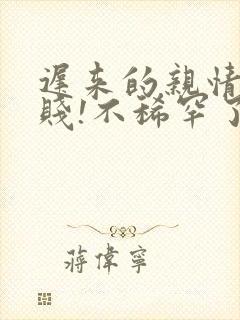 遲來的親情
賤!不稀罕了
蔣偉寧